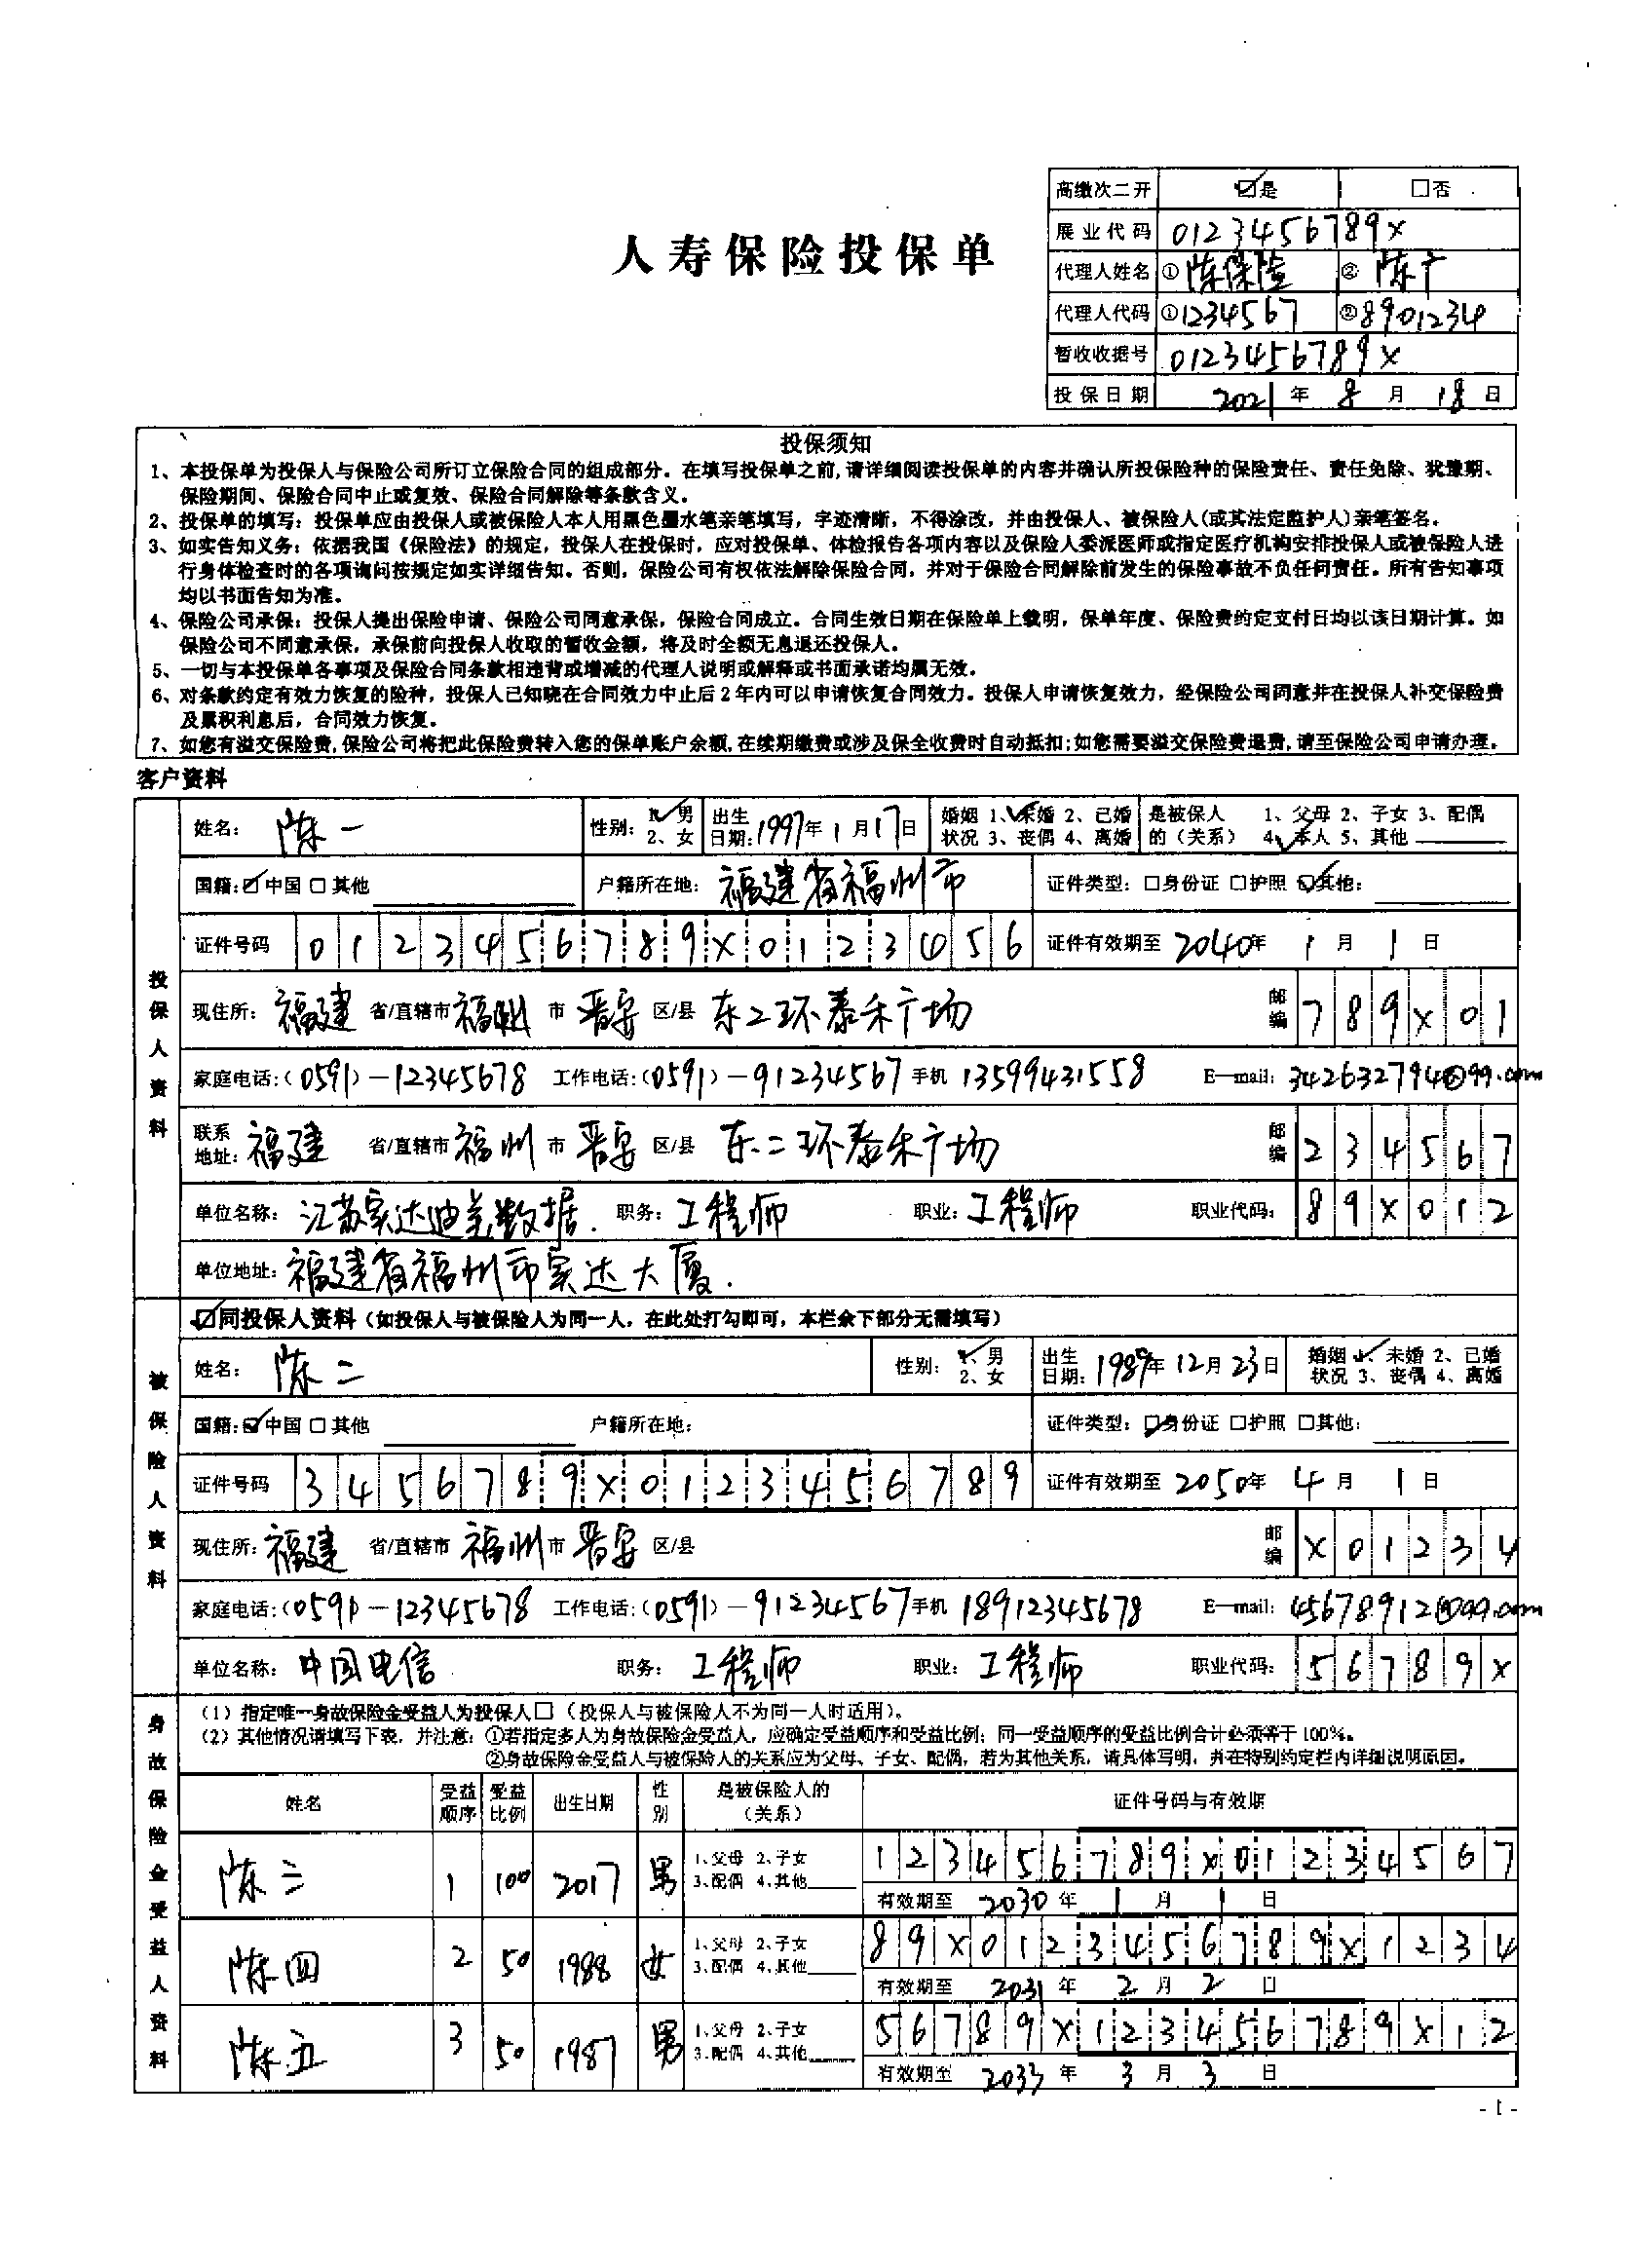 高缴次二开 ☑是 □否
人寿保险投保单
展业代码 0123456789X
代理人姓名 ①陈保险 ②陈广
代理人代码 ①1234567 ②8901234
暂收收据号 0123456789X
投保日期 2021年8月18日
投保须知
1、本投保单为投保人与保险公司所订立保险合同的组成部分。在填写投保单之前,请详细阅读投保单的内容并确认所投保险种的保险责任、责任免除、犹豫期、
保险期间、保险合同中止或复效、保险合同解除等条款含义。
2、投保单的填写：投保单应由投保人或被保险人本人用黑色墨水笔亲笔填写，字迹清晰，不得涂改，并由投保人、被保险人(或其法定监护人)亲笔签名。
3、如实告知义务：依据我国《保险法》的规定，投保人在投保时，应对投保单、体检报告各项内容以及保险人委派医师或指定医疗机构安排投保人或被保险人进
行身体检查时的各项询问按规定如实详细告知。否则，保险公司有权依法解除保险合同，并对于保险合同解除前发生的保险事故不负任何责任。所有告知事项
均以书面告知为准。
4、保险公司承保：投保人提出保险申请、保险公司同意承保，保险合同成立。合同生效日期在保险单上载明，保单年度、保险费约定支付日均以该日期计算。如
保险公司不同意承保，承保前向投保人收取的暂收金额，将及时全额无息退还投保人。
5、一切与本投保单各事项及保险合同条款相违背或增减的代理人说明或解释或书面承诺均属无效。
6、对条款约定有效力恢复的险种，投保人已知晓在合同效力中止后2年内可以申请恢复合同效力。投保人申请恢复效力，经保险公司同意并在投保人补交保险费
及累积利息后，合同效力恢复。
7、如您有溢交保险费,保险公司将把此保险费转入您的保单账户余额,在续期缴费或涉及保全收费时自动抵扣;如您需要溢交保险费退费,请至保险公司申请办理。
客户资料
投保人资料
姓名：陈一 性别：1、男 2、女 出生日期：1997年1月17日 婚姻状况 1、未婚 2、已婚 3、丧偶 4、离婚 是被保人的（关系） 1、父母 2、子女 3、配偶 4、本人 5、其他
国籍：☑中国 □其他 户籍所在地：福建省福州市 证件类型：□身份证 □护照 ☑其他：
证件号码 0123456789X0123456 证件有效期至 2040年1月1日
现住所：福建 省/直辖市 福州 市 晋安 区/县 东二环泰禾广场 邮编 789X01
家庭电话：(0591)-12345678 工作电话：(0591)-91234567 手机 13599431558 E—mail：342632794@qq.com
联系地址：福建 省/直辖市 福州 市 晋安 区/县 东二环泰禾广场 邮编 234567
单位名称：江苏实达迪美数据. 职务：工程师 职业：工程师 职业代码：89X012
单位地址：福建省福州市实达大厦.
被保险人资料
☑同投保人资料（如投保人与被保险人为同一人，在此处打勾即可，本栏余下部分无需填写）
姓名：陈二 性别：1、男 2、女 出生日期：1989年12月23日 婚姻状况 1、未婚 2、已婚 3、丧偶 4、离婚
国籍：☑中国 □其他 户籍所在地： 证件类型：☑身份证 □护照 □其他：
证件号码 3456789X0123456789 证件有效期至 2050年4月1日
现住所：福建 省/直辖市 福州 市 晋安 区/县 邮编 X01234
家庭电话：(0591)-12345678 工作电话：(0591)-91234567 手机 18912345678 E—mail：456789121@qq.com
单位名称：中国电信 职务：工程师 职业：工程师 职业代码：56789X
身故保险金受益人资料
（1）指定唯一身故保险金受益人为投保人□（投保人与被保险人不为同一人时适用）。
（2）其他情况请填写下表，并注意：①若指定多人为身故保险金受益人，应确定受益顺序和受益比例；同一受益顺序的受益比例合计必须等于100%。
②身故保险金受益人与被保险人的关系应为父母、子女、配偶，若为其他关系，请具体写明，并在特别约定栏内详细说明原因。
姓名 受益顺序 受益比例 出生日期 性别 是被保险人的（关系） 证件号码与有效期
陈三 1 100 2017 男 1、父母 2、子女 3、配偶 4、其他 123456789X01234567
有效期至 2030年1月1日
陈四 2 50 1988 女 1、父母 2、子女 3、配偶 4、其他 89X0123456789X1234
有效期至 2031年2月2日
陈五 3 50 1987 男 1、父母 2、子女 3、配偶 4、其他 56789X123456789X12
有效期至 2033年3月3日
- 1 -